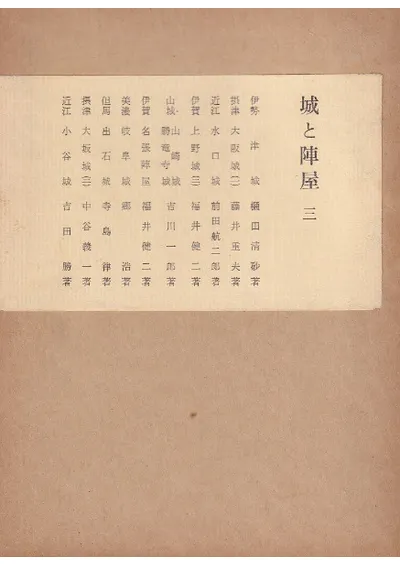 城と陣屋 三
伊勢 津城 樋田清砂著
摂津 大阪城(一) 藤井重夫著
近江 水口城 前田航二郎著
伊賀 上野城(二) 福井健二著
山城 山崎城・勝竜寺城 吉川一郎著
伊賀 名張陣屋 福井健二著
美濃 岐阜城 郷浩著
但馬 出石城 寺島律著
摂津 大坂城(二) 中谷義一著
近江 小谷城 吉田勝著